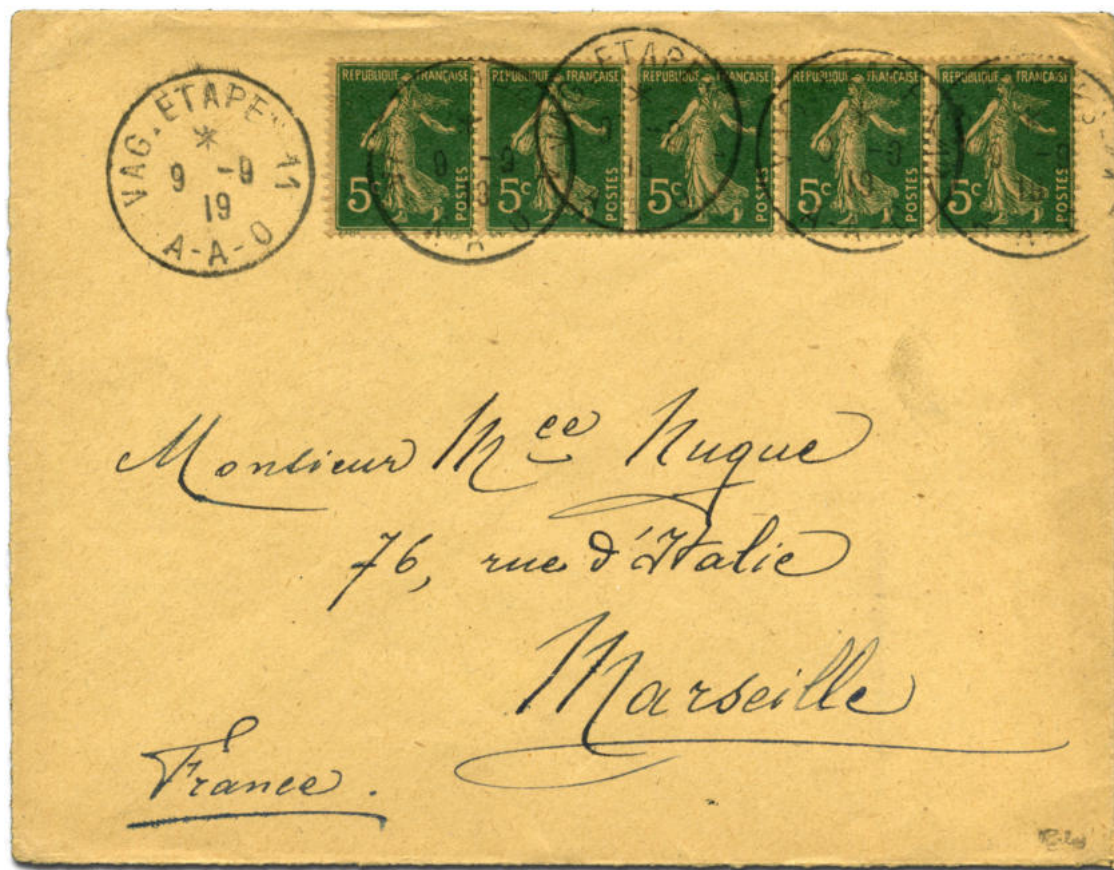 VAG. ETAPE N 11
*
9 -9
19
A-A-O
REPUBLIQUE FRANÇAISE
5c
POSTES
REPUBLIQUE FRANÇAISE
5c
POSTES
REPUBLIQUE FRANÇAISE
5c
POSTES
REPUBLIQUE FRANÇAISE
5c
POSTES
REPUBLIQUE FRANÇAISE
5c
POSTES
Monsieur Mce Nugue
76, rue d'Italie
Marseille
France.